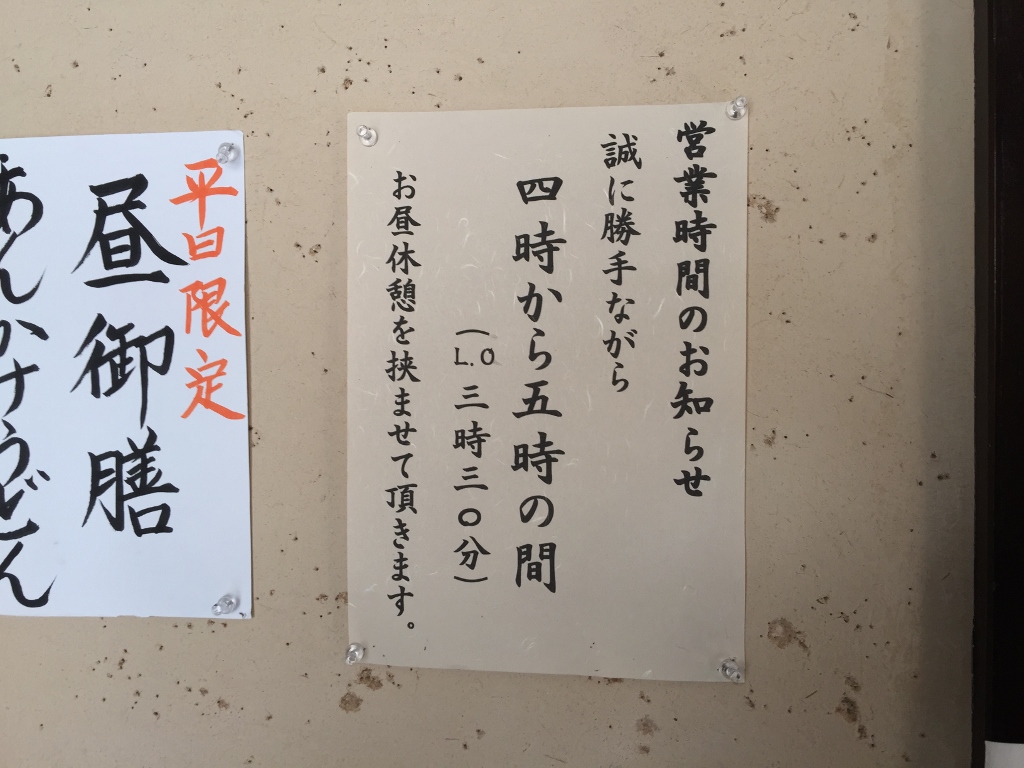 営業時間のお知らせ
誠に勝手ながら
四時から五時の間
（L.O 三時三〇分）
お昼休憩を挟ませて頂きます。
平日限定
昼御膳
あんかけうどん